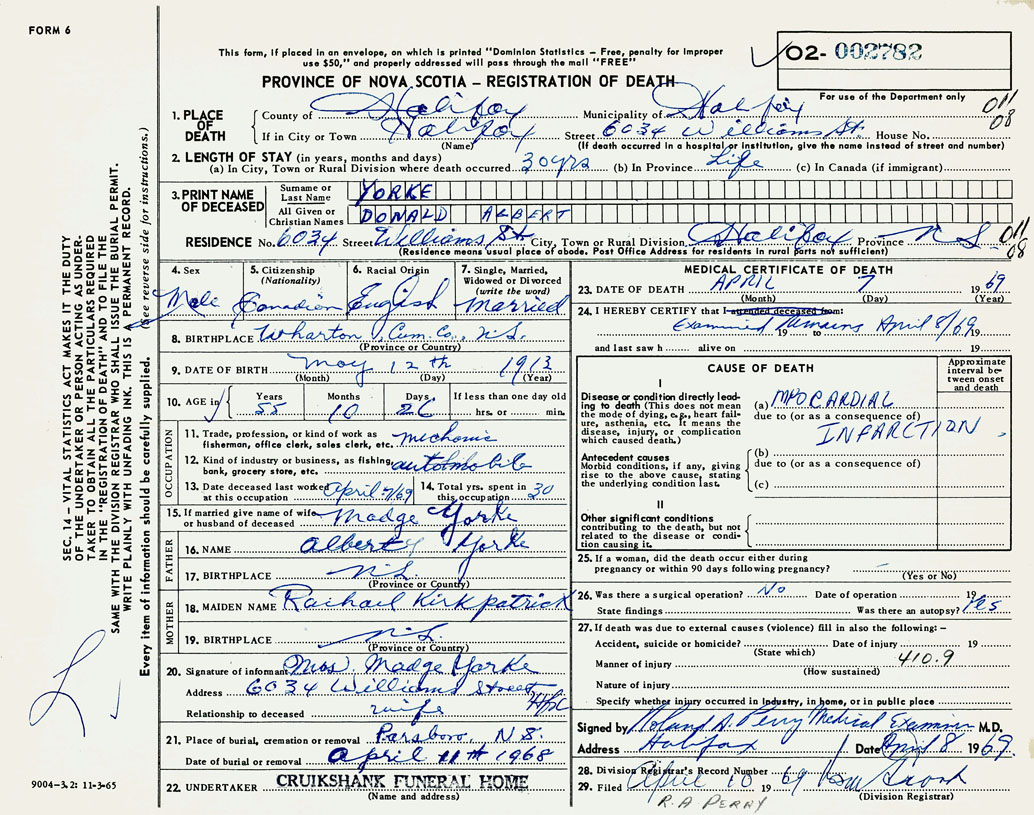 FORM 6
This form, if placed in an envelope, on which is printed "Dominion Statistics – Free, penalty for improper
use $50," and properly addressed will pass through the mail "FREE"
O2- 002782
For use of the Department only
PROVINCE OF NOVA SCOTIA – REGISTRATION OF DEATH
011
08
1. PLACE OF DEATH
County of Halifax Municipality of Halifax
If in City or Town Halifax Street 6034 Williams St. House No.
(Name) (If death occurred in a hospital or institution, give the name instead of street and number)
2. LENGTH OF STAY (in years, months and days)
(a) In City, Town or Rural Division where death occurred 30 yrs (b) In Province Life (c) In Canada (if immigrant)
3. PRINT NAME OF DECEASED
Surname or Last Name YORKE
All Given or Christian Names DONALD ALBERT
RESIDENCE No. 6034 Street Williams St City, Town or Rural Division Halifax Province N S
(Residence means usual place of abode. Post Office Address for residents in rural parts not sufficient)
011
08
4. Sex Male
5. Citizenship (Nationality) Canadian
6. Racial Origin English
7. Single, Married, Widowed or Divorced (write the word) Married
8. BIRTHPLACE Wharton, Cum. Co., N.S.
(Province or Country)
9. DATE OF BIRTH May 12th 1913
(Month) (Day) (Year)
10. AGE in Years 55 Months 10 Days 26 If less than one day old hrs. or min.
OCCUPATION
11. Trade, profession, or kind of work as fisherman, office clerk, sales clerk, etc. mechanic
12. Kind of industry or business, as fishing, bank, grocery store, etc. automobile
13. Date deceased last worked at this occupation April 7/69
14. Total yrs. spent in this occupation 30
15. If married give name of wife or husband of deceased Madge Yorke
FATHER
16. NAME Albert Yorke
17. BIRTHPLACE N.S.
(Province or Country)
MOTHER
18. MAIDEN NAME Rachael Kirkpatrick
19. BIRTHPLACE N.S.
(Province or Country)
20. Signature of informant Mrs. Madge Yorke
Address 6034 Williams Street Hfx
Relationship to deceased wife
21. Place of burial, cremation or removal Parsboro, N.S.
Date of burial or removal April 11th 1968
22. UNDERTAKER CRUIKSHANK FUNERAL HOME
(Name and address)
MEDICAL CERTIFICATE OF DEATH
23. DATE OF DEATH APRIL 7 1969
(Month) (Day) (Year)
24. I HEREBY CERTIFY that I attended deceased from:
Examined Remains April 8/69
19 to 19
and last saw h alive on 19
CAUSE OF DEATH
Approximate interval between onset and death
I
Disease or condition directly leading to death (This does not mean the mode of dying, e.g., heart failure, asthenia, etc. It means the disease, injury, or complication which caused death.)
(a) MYOCARDIAL
due to (or as a consequence of)
INFARCTION
Antecedent causes
Morbid conditions, if any, giving rise to the above cause, stating the underlying condition last.
(b)
due to (or as a consequence of)
(c)
II
Other significant conditions
contributing to the death, but not related to the disease or condition causing it.
25. If a woman, did the death occur either during
pregnancy or within 90 days following pregnancy?
(Yes or No)
26. Was there a surgical operation? No Date of operation 19
State findings Was there an autopsy? Yes
27. If death was due to external causes (violence) fill in also the following: –
Accident, suicide or homicide? Date of injury 19
(State which)
410.9
Manner of injury
(How sustained)
Nature of injury
Specify whether injury occurred in Industry, in home, or in public place
Signed by Roland A. Perry Medical Examiner M.D.
Address Halifax Date April 8 1969
28. Division Registrar's Record Number
29. Filed April 10 1969
(Division Registrar)
R.A PERRY
SEC. 14 – VITAL STATISTICS ACT MAKES IT THE DUTY
OF THE UNDERTAKER OR PERSON ACTING AS UNDER-
TAKER TO OBTAIN ALL THE PARTICULARS REQUIRED
IN THE "REGISTRATION OF DEATH" AND TO FILE THE
SAME WITH THE DIVISION REGISTRAR WHO SHALL ISSUE THE BURIAL PERMIT.
WRITE PLAINLY WITH UNFADING INK. THIS IS A PERMANENT RECORD.
Every item of information should be carefully supplied. (See reverse side for instructions.)
9004-3.2: 11-3-65